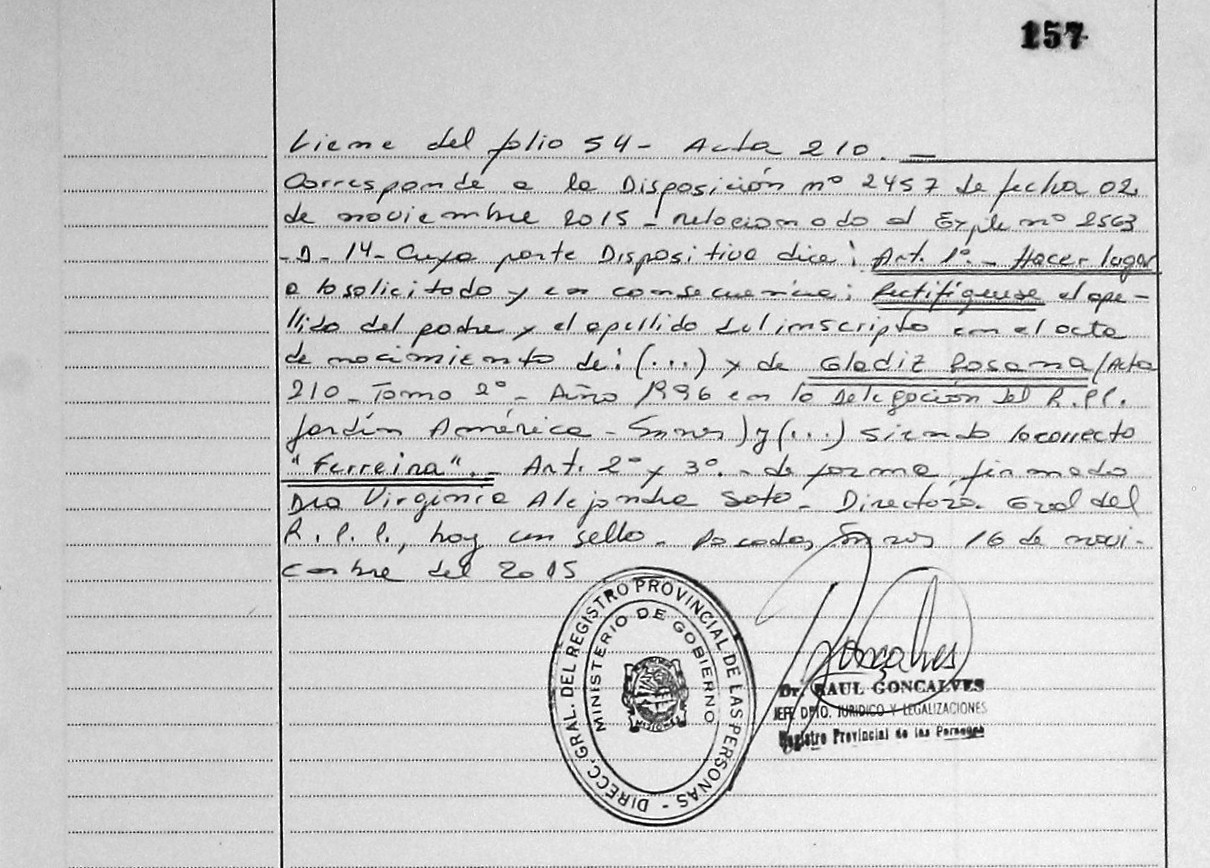 157
Viene del folio 54- Acta 210. —
Corresponde a la Disposición nº 2457 de fecha 02
de noviembre 2015 - relacionado al Expte nº 2563
-D- 14- Cuya parte Dispositiva dice: Art. 1º.- Hacer lugar
a lo solicitado y en consecuencia; Rectifíquese el ape-
llido del padre y el apellido del inscripto en el acta
de nacimiento de: (...) y de Gladiz Rosana/Acta
210- Tomo 2º- Año 1996 en la Delegación del R.P.P.
Jardín América - ) y (...) siendo lo correcto
"Ferreira".- Art. 2º y 3º.- de forma, firmado
Dra Virginia Alejandra Soto- Directora Gral del
R.P.P., hay un sello- Posadas, 16 de novi-
embre del 2015
DIRECC. GRAL. DEL REGISTRO PROVINCIAL DE LAS PERSONAS -
MINISTERIO DE GOBIERNO
MISIONES
Goncalves
Dr. RAUL GONCALVES
JEFE DPTO. JURIDICO Y LEGALIZACIONES
Registro Provincial de las Personas